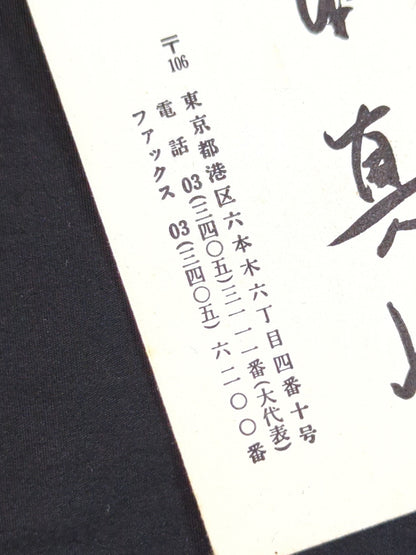 真
〒106 東京都港区六本木六丁目四番十号
電話 03(三四〇五)三一一一番(大代表)
ファックス 03(三四〇五)六二〇〇番